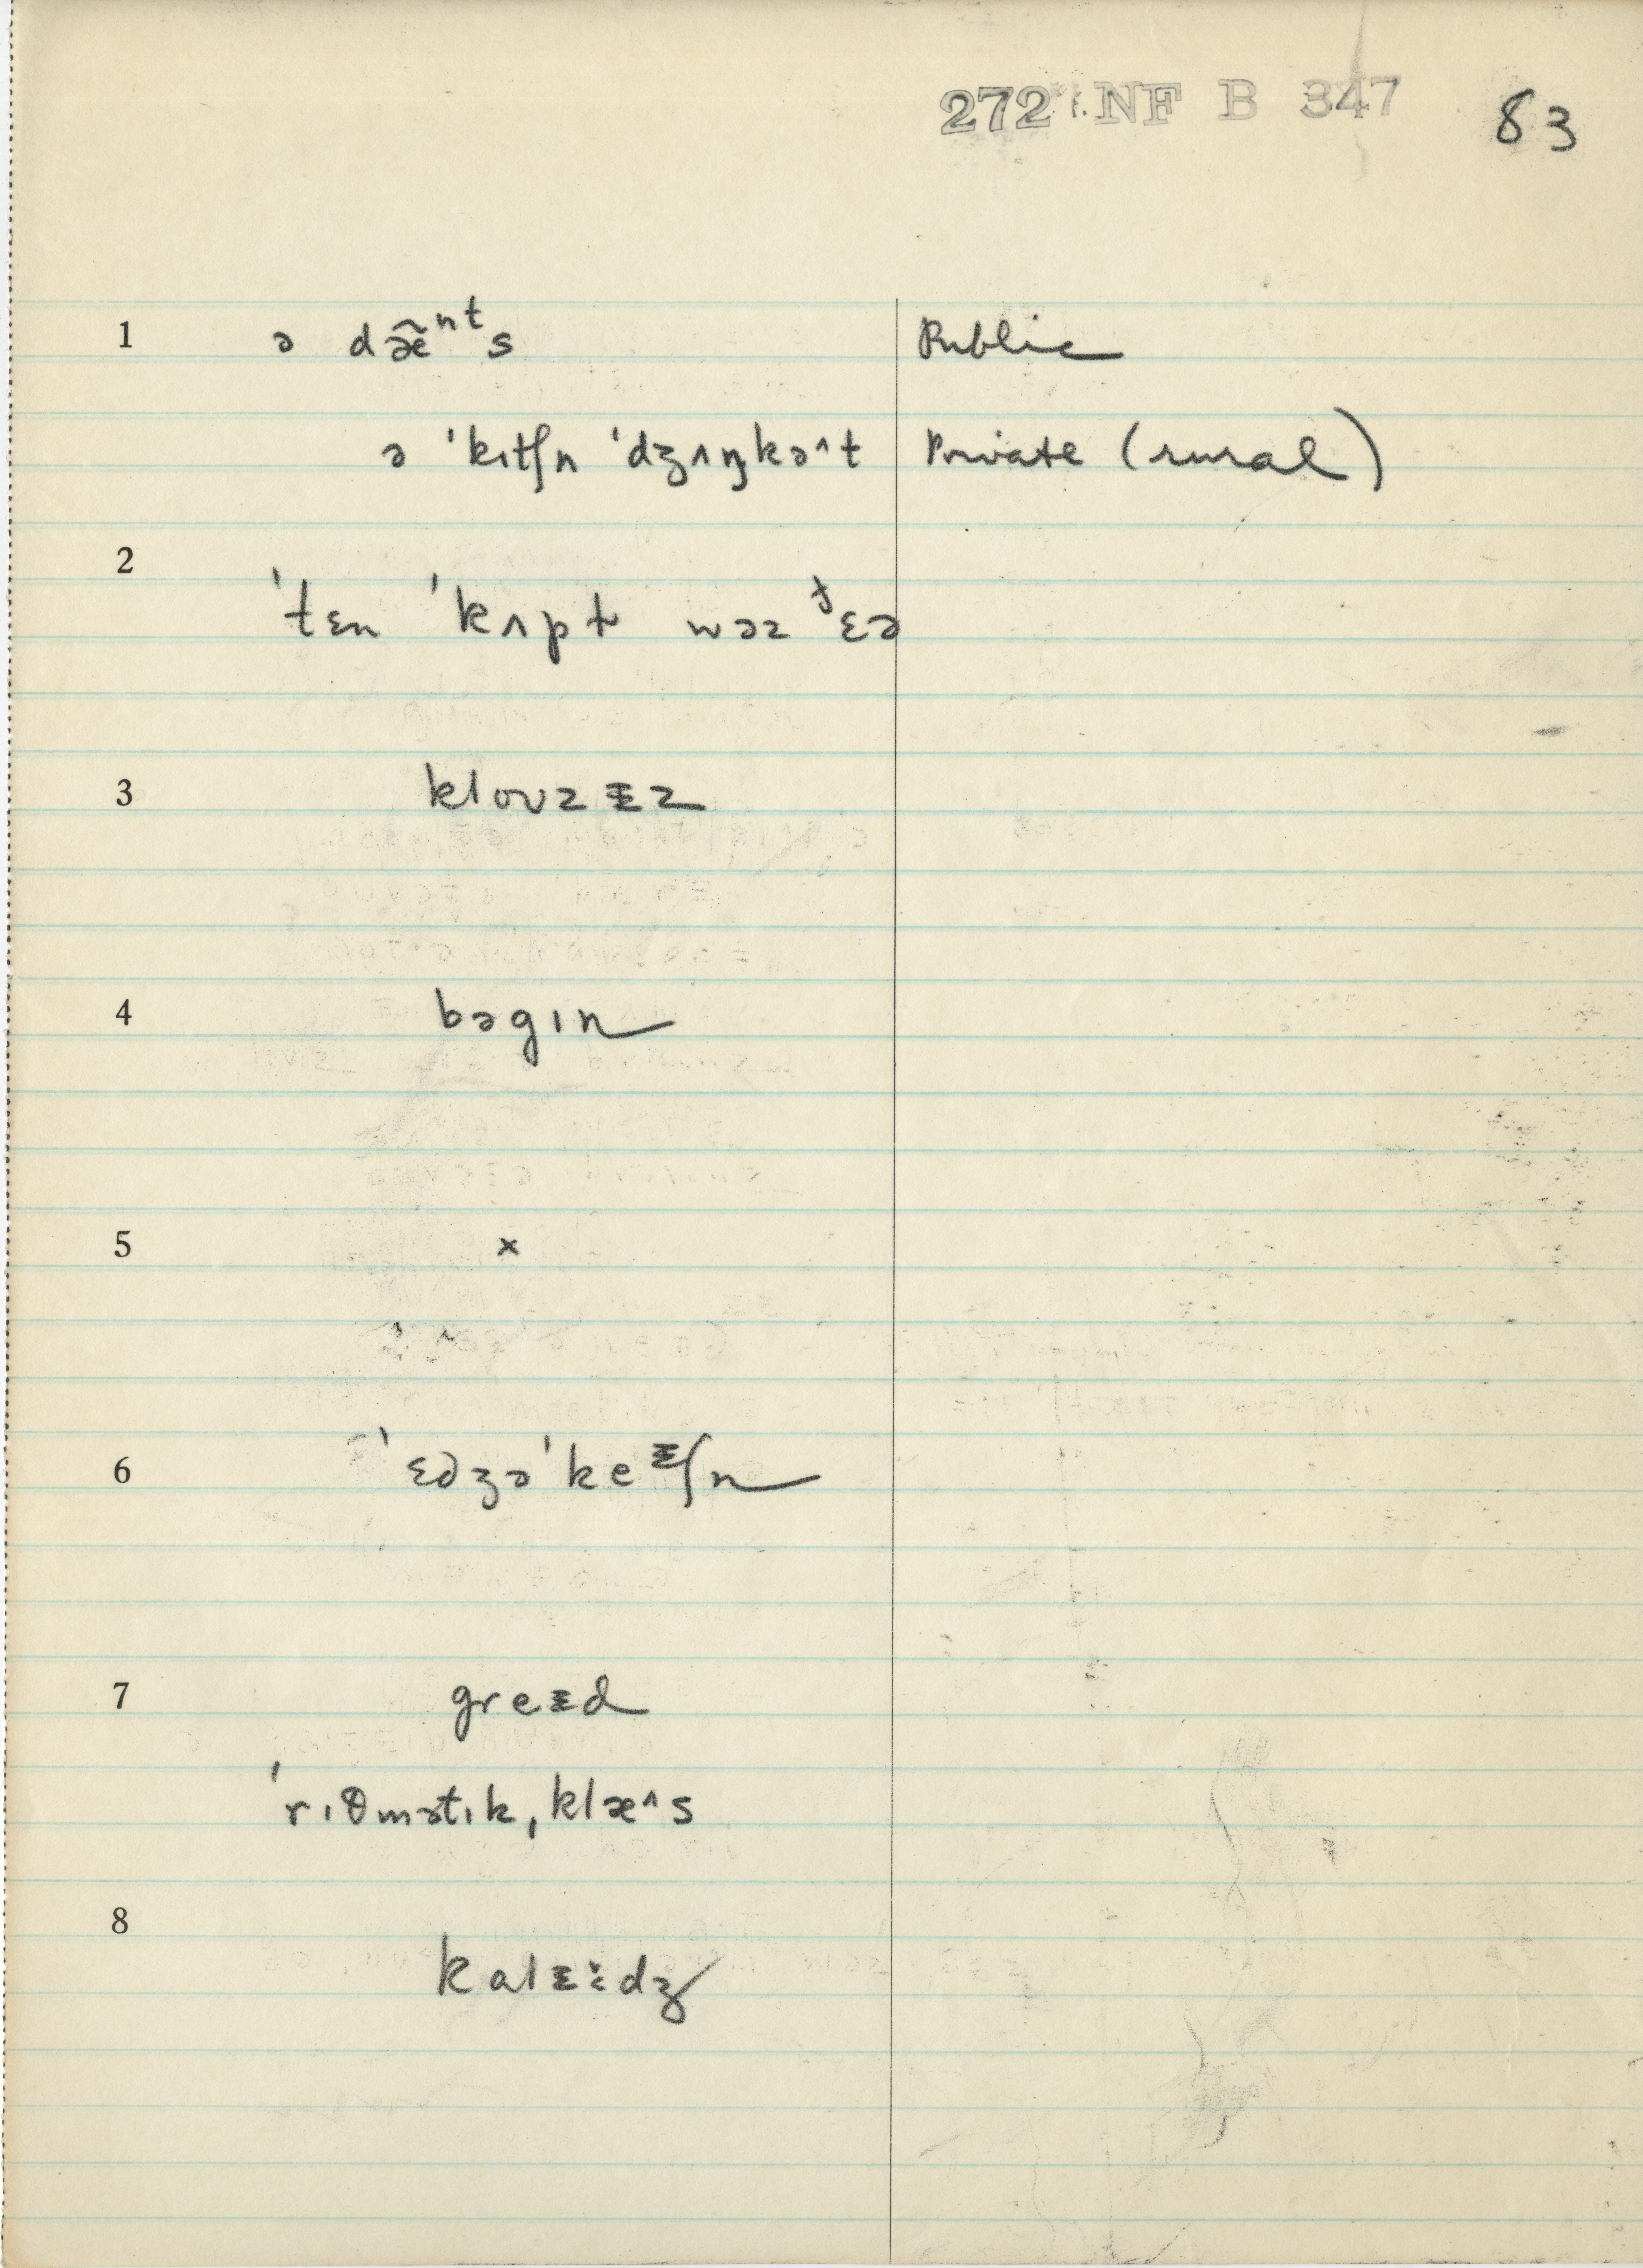 272 NF B 347 83
1 ə dæ̃ⁿᵗs Public
ə ˈkɪtʃn ˈdʒʌŋkə^t Private (rural)
2
ˈtɛn ˈkʌpt wəz ðɛə
3 kloʊz ᵻz
4 bəgɪn
5 x
6 ˈɛdʒəˈkeᵻʃn
7 greᵻd
ˈrɪθmətɪk, klæ^s
8
kalᵻ:dʒ